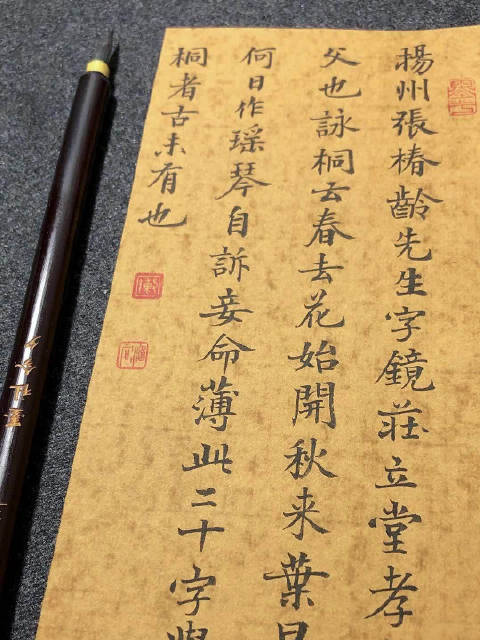 楊州張椿齡先生字鏡莊立堂孝
父也詠桐云春去花始開秋来葉
何日作瑶琴自訴妾命薄此二十字
桐者古未有也